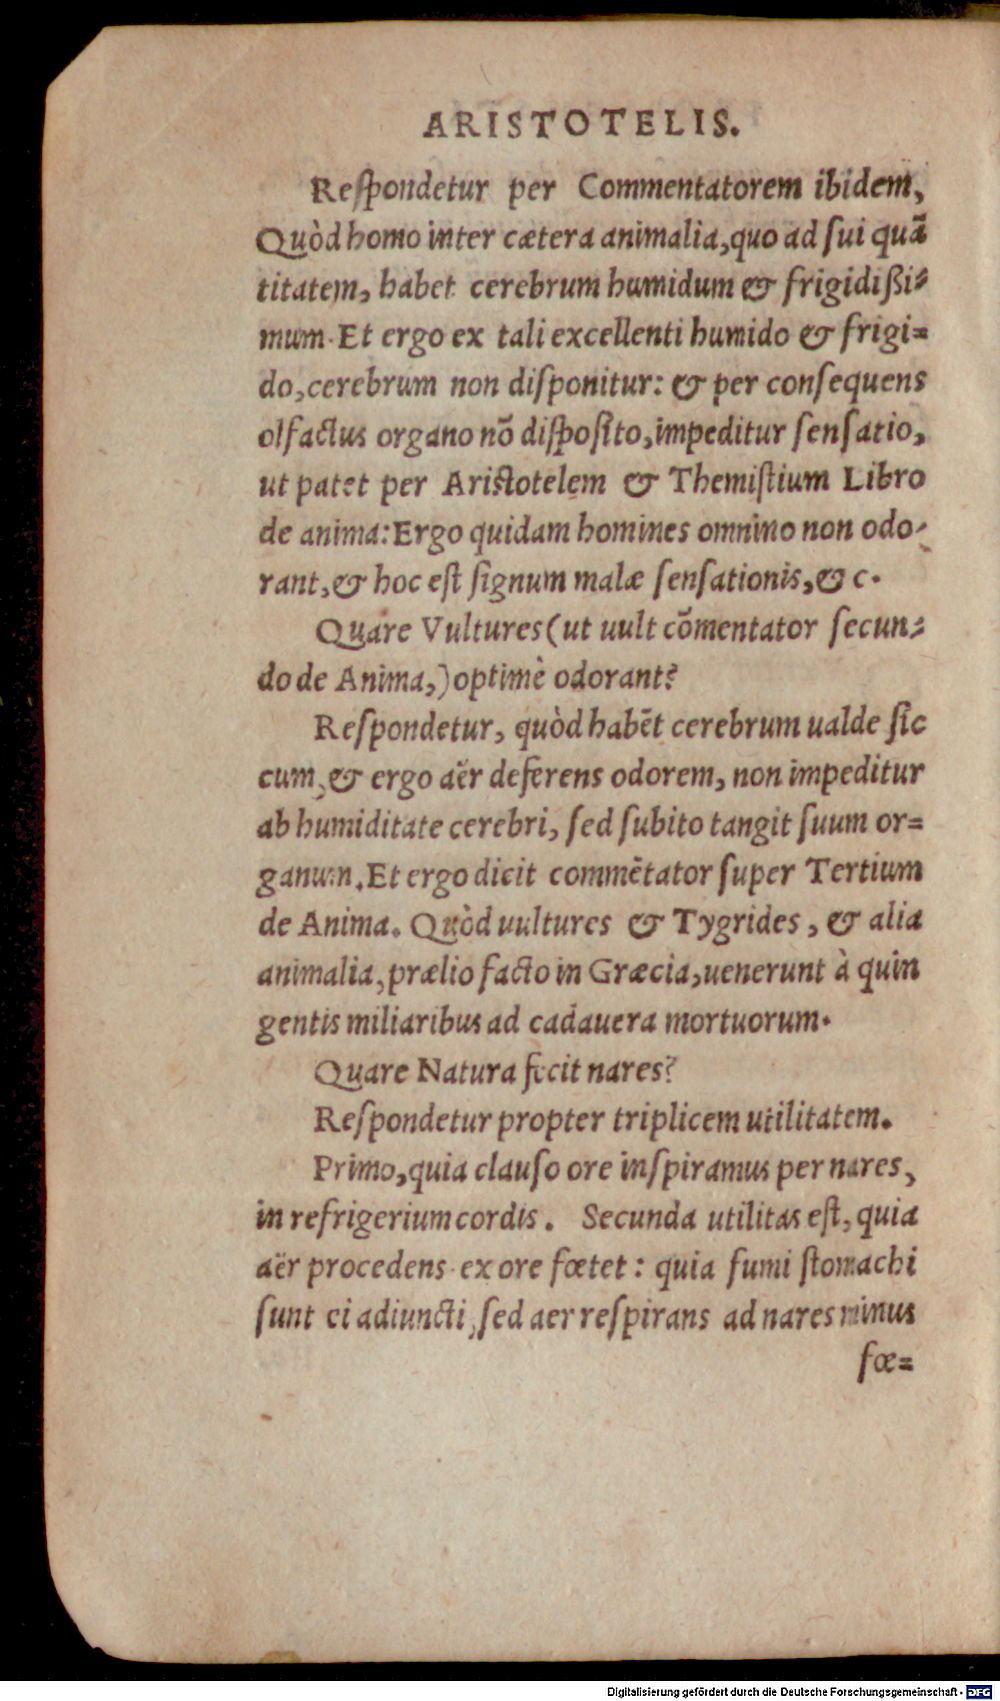 ARISTOTELIS.
Reſpondetur per Commentatorem ibidem,
Quòd homo inter cætera animalia, quo ad ſui quã
titatem, habet cerebrum humidum & frigidißi=
mum. Et ergo ex tali excellenti humido & frigi=
do, cerebrum non diſponitur: & per conſequens
olfactus organo nõ diſpoſito, impeditur ſenſatio,
ut patet per Ariſtotelem & Themiſtium Libro
de anima: Ergo quidam homines omnino non odo-
rant, & hoc eſt ſignum malæ ſenſationis, & c.
Quare Vultures (ut uult cõmentator ſecun=
do de Anima,) optimè odorant?
Reſpondetur, quòd habẽt cerebrum ualde ſic
cum, & ergo aër deferens odorem, non impeditur
ab humiditate cerebri, ſed ſubito tangit ſuum or=
ganum. Et ergo dicit commẽtator ſuper Tertium
de Anima. Quòd uultures & Tygrides, & alia
animalia, prælio facto in Græcia, uenerunt à quin
gentis miliaribus ad cadauera mortuorum.
Quare Natura fecit nares?
Reſpondetur propter triplicem utilitatem.
Primo, quia clauſo ore inſpiramus per nares,
in refrigerium cordis. Secunda utilitas eſt, quia
aër procedens ex ore fœtet: quia fumi ſtomachi
ſunt ei adiuncti, ſed aer reſpirans ad nares minus
fœ=
Digitalisierung gefördert durch die Deutsche Forschungsgemeinschaft - DFG